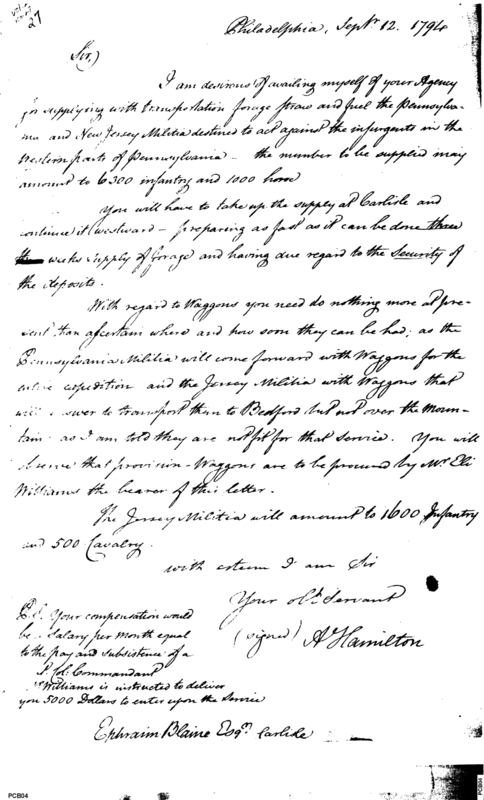 27
Philadelphia, Septr. 12. 1794
Sir,)
I am desirous of availing myself of your Agency
for supplying with transportation forage straw and fuel the Pennsylva-
nia and New Jersey Militia destined to act against the insurgents in the
Western parts of Pennsylvania - the number to be supplied may
amount to 6300 infantry and 1000 horse
You will have to take up the supply at Carlisle and
continue it westward - preparing as fast as it can be done three
weeks supply of forage and having due regard to the Security of
the deposits.
With regard to Waggons you need do nothing more at pre-
sent than ascertain where and how soon they can be had; as the
Pennsylvania Militia will come forward with Waggons for the
entire expedition and the Jersey Militia with Waggons that
will answer to transport them to Bedford but not over the Moun-
tain - as I am told they are not fit for that service. You will
observe that provision-Waggons are to be procured by Mr. Eli
Williams the bearer of this letter.
The Jersey Militia will amount to 1600 Infantry
and 500 Cavalry.
with esteem I am Sir
Your obt. Servant
(signed) A. Hamilton
P.S. Your compensation would
be a Salary per month equal
to the pay and subsistence of a
Lt. Col: Commandant
Mr Williams is instructed to deliver
you 5000 Dollars to enter upon the Service
Ephraim Blaine Esqr. Carlisle
PCB04
PCB04